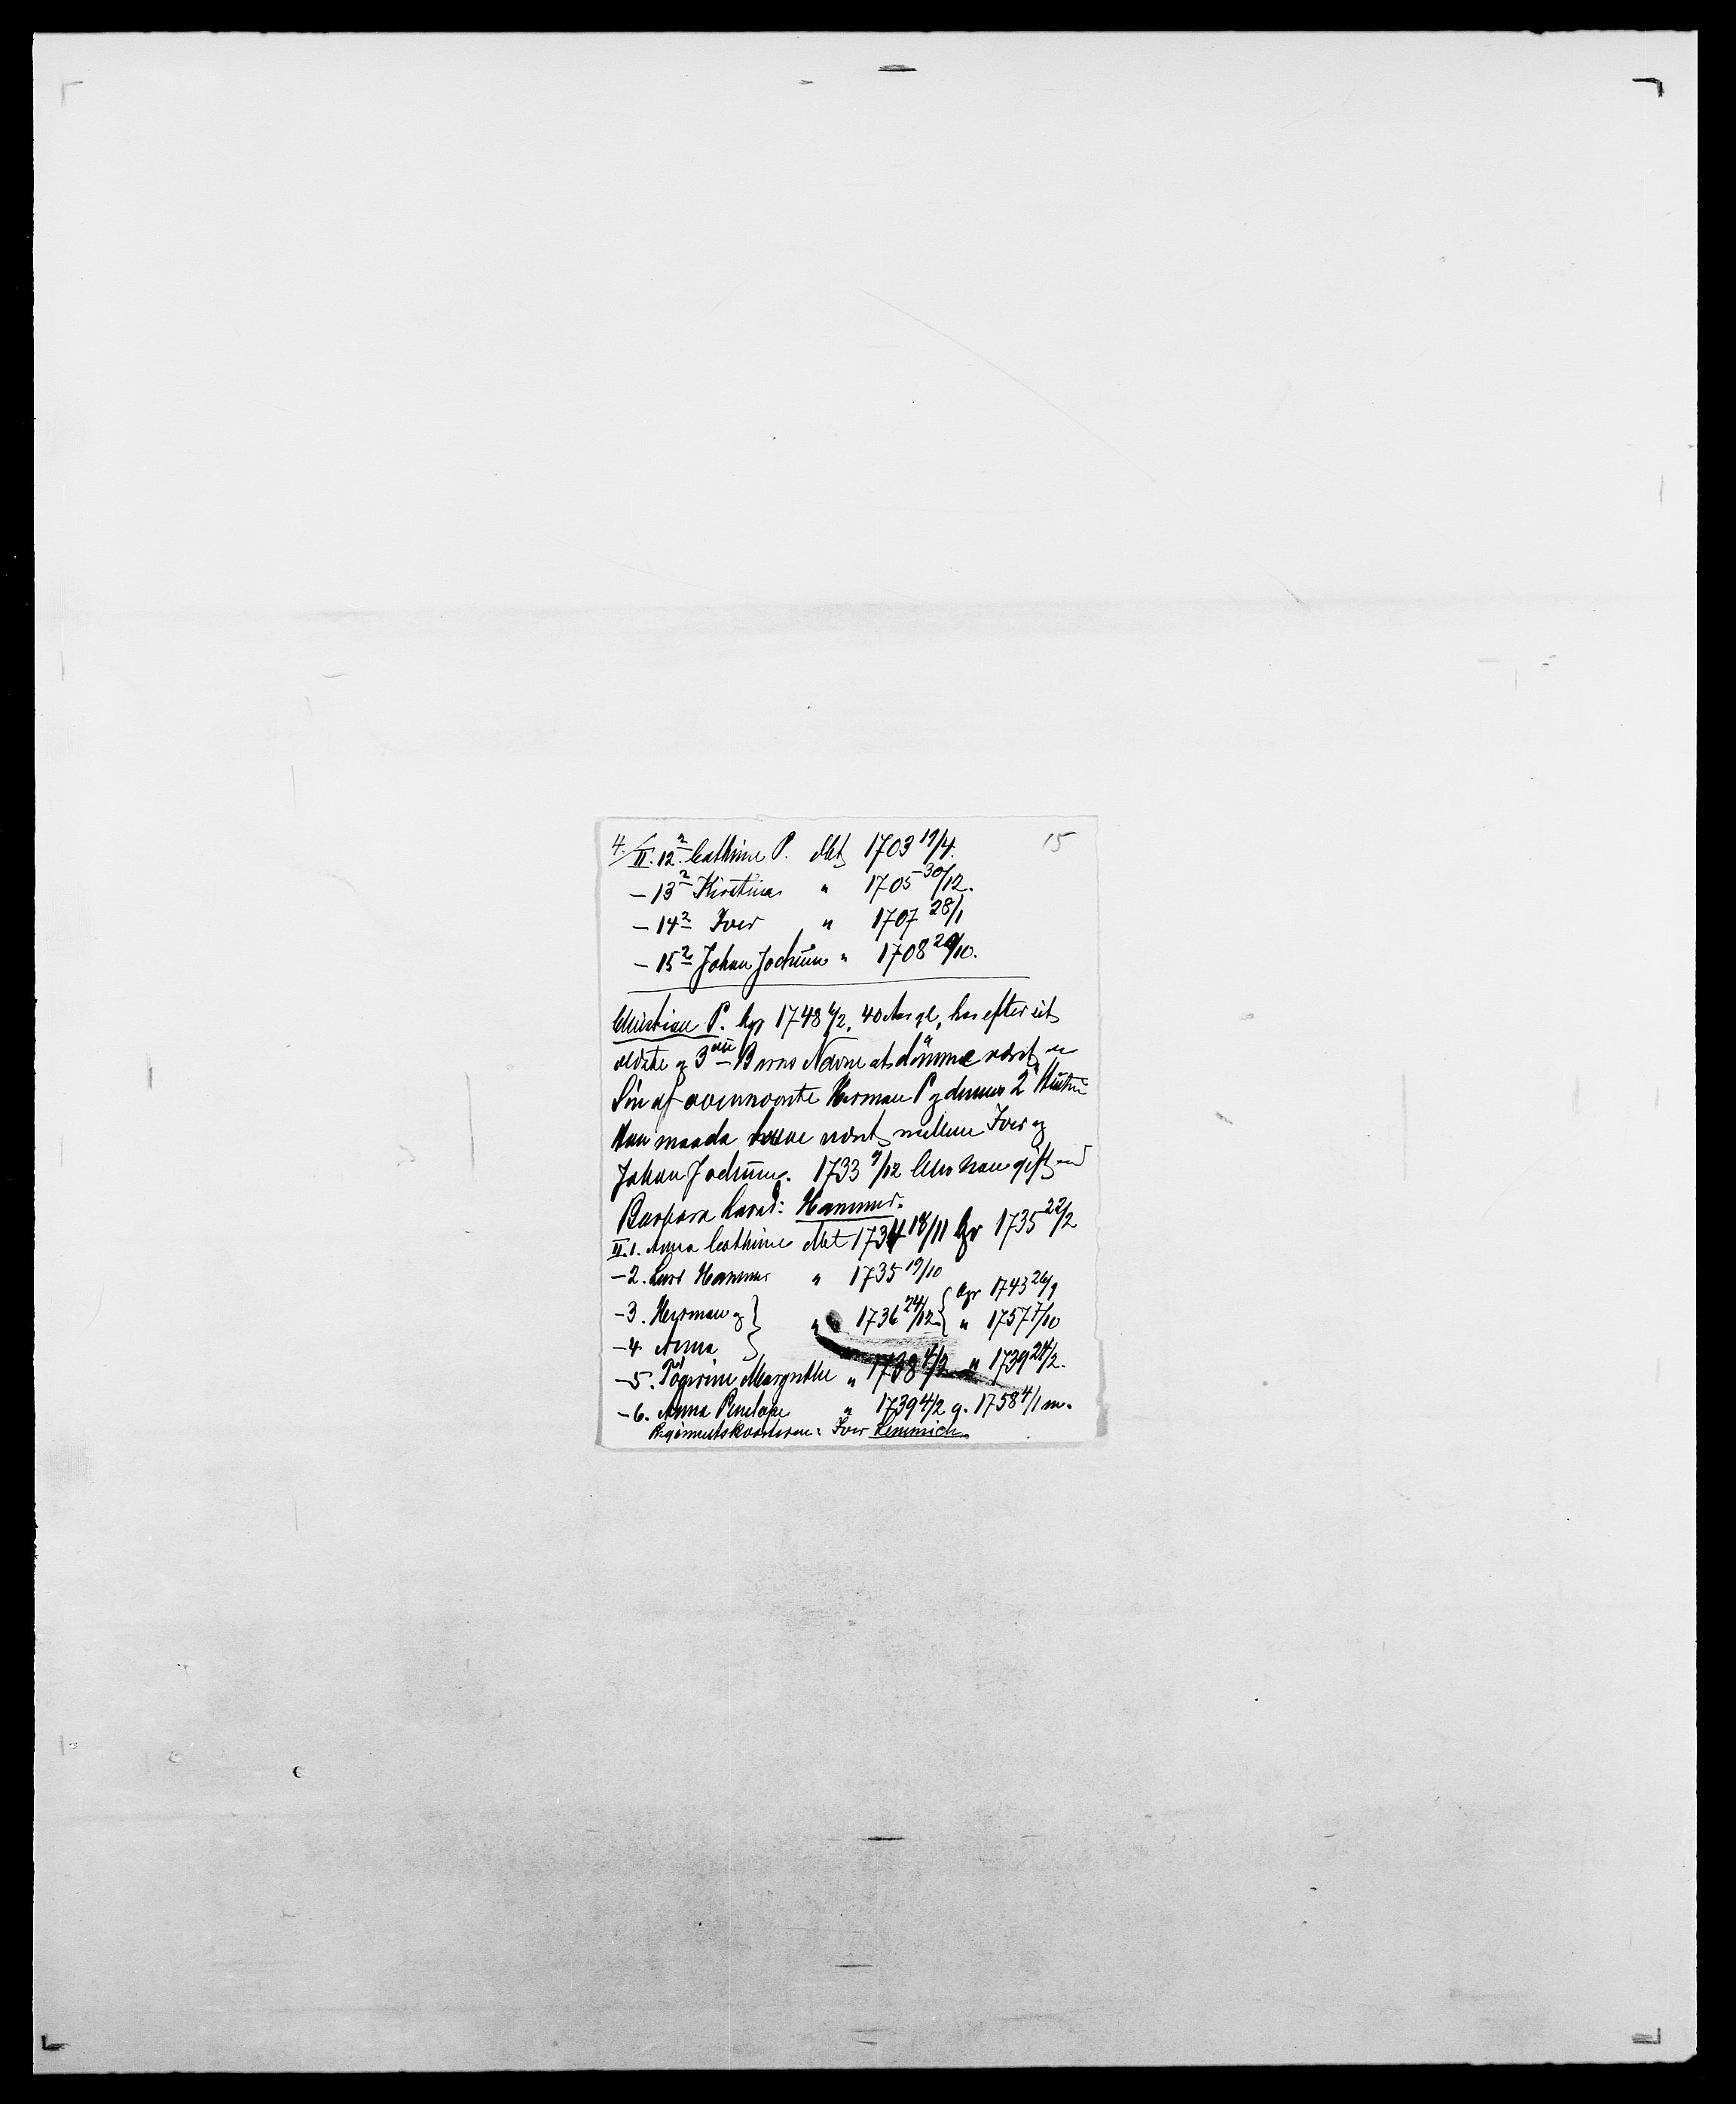 15
4./II. 12² Cathrine P. dbt 1703 19/4.
— 13² Kirstina " 1705 30/12.
— 14² Iver " 1707 28/1
— 15² Johan Jochum " 1708 29/10.
Christian P. bgr 1748 6/2, 40 Aar gl, har efter sit
ældste og 3die Barns Navne at dømme været en
Søn af ovennævnte Herman P og dennes 2 Hustru
Han maa da have været mellem Iver og
Johan Jochum. 1733 9/12 blev han gift med
Barbara Larsd: Hammer.
II. 1. Anna Cathrine dbt 1734 18/11 bgr 1735 22/2
— 2. Lars Hammer " 1735 19/10
— 3. Herman og } " 1736 24/12 { bgr 1743 26/9
— 4. Anna } " 1757 7/10
— 5. Margrethe " 1738 4/2 " 1739 24/2.
— 6. Anna Penelope " 1739 4/2 g. 1758 4/1 m.
Regimentskvarterm: Iver Lemmich